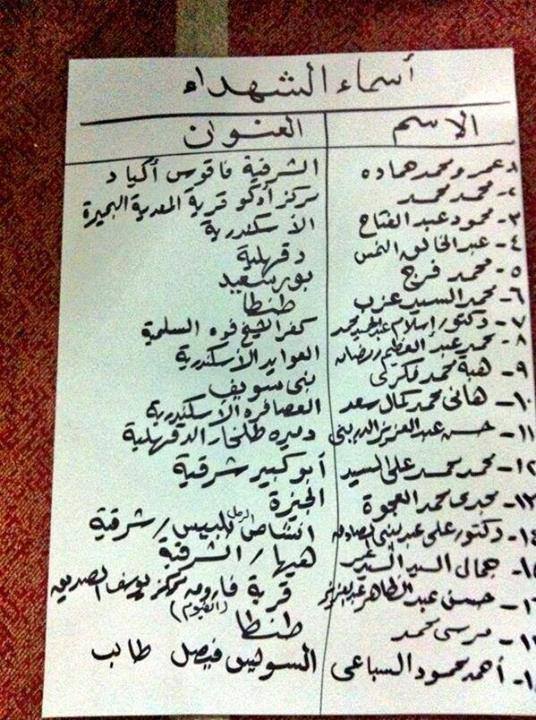 أسماء الشهداء
الإسم العنوان
١- عمرو محمد حماده الشرقية فاقوس أكياد
٢- محمد محمد مركز أدكو قرية المعدية البحيرة
٣- محمود عبد الفتاح الأسكندرية
٤- عبد الخالق دقهلية
٥- محمد فرج بورسعيد
٦- محمد السيد عزب طنطا
٧- دكتور/ إسلام محمد كفر الشيخ فوه السلمية
٨- محمد عبد العظيم رمضان العوايد الأسكندرية
٩- هبة محمد فكرى بنى سويف
١٠- هانى محمد كمال سعد العصافره الأسكندرية
١١- حسن عبد العزيز الدرينى دميره طلخا الدقهلية
١٢- محمد محمد على السيد أبو كبير شرقية
١٣- مجدى محمد العجوة الجيزة
١٤- دكتور/ على انشاص الرمل بلبيس/ شرقية
١٥- جمال السيد السيد عمر ههيا/ الشرقية
١٦- حسن عبد الظاهر عبد العزيز قرية فاروق مركز يوسف الصديق (الفيوم)
مرسى محمد طنطا
أحمد محمود السباعى السويس فيصل طالب